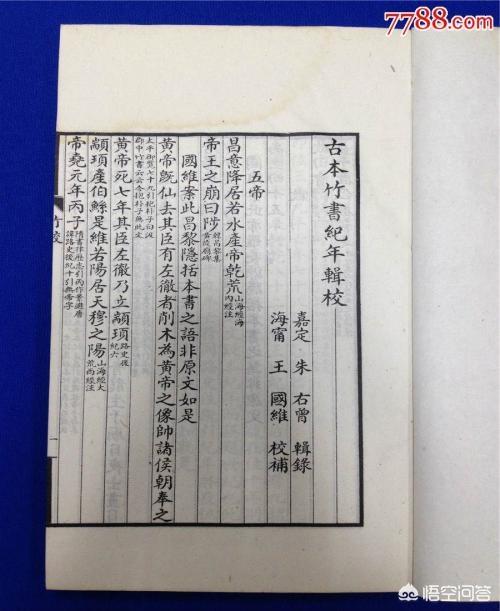 7788.com
古本竹書紀年輯校
嘉定 朱右曾 輯錄
海甯 王國維 校補
五帝
昌意降居若水產帝乾荒 山海經海內經注
帝王之崩曰陟 韓昌黎集黃陵廟碑
國維案此昌黎隱括本書之語非原文如是
黃帝既仙去其臣有左徹者削木為黃帝之像帥諸侯朝奉之
太平御覽七十九引抱朴子曰汲郡中竹書云云今抱朴子無此文
黃帝死七年其臣左徹乃立顓頊 路史後紀六
顓頊產伯鯀是維若陽居天穆之陽 山海經大荒西經注
帝堯元年丙子 隋書律歷志引丙作景避唐諱路史後紀十引無帝字
竹校
一
悟空问答